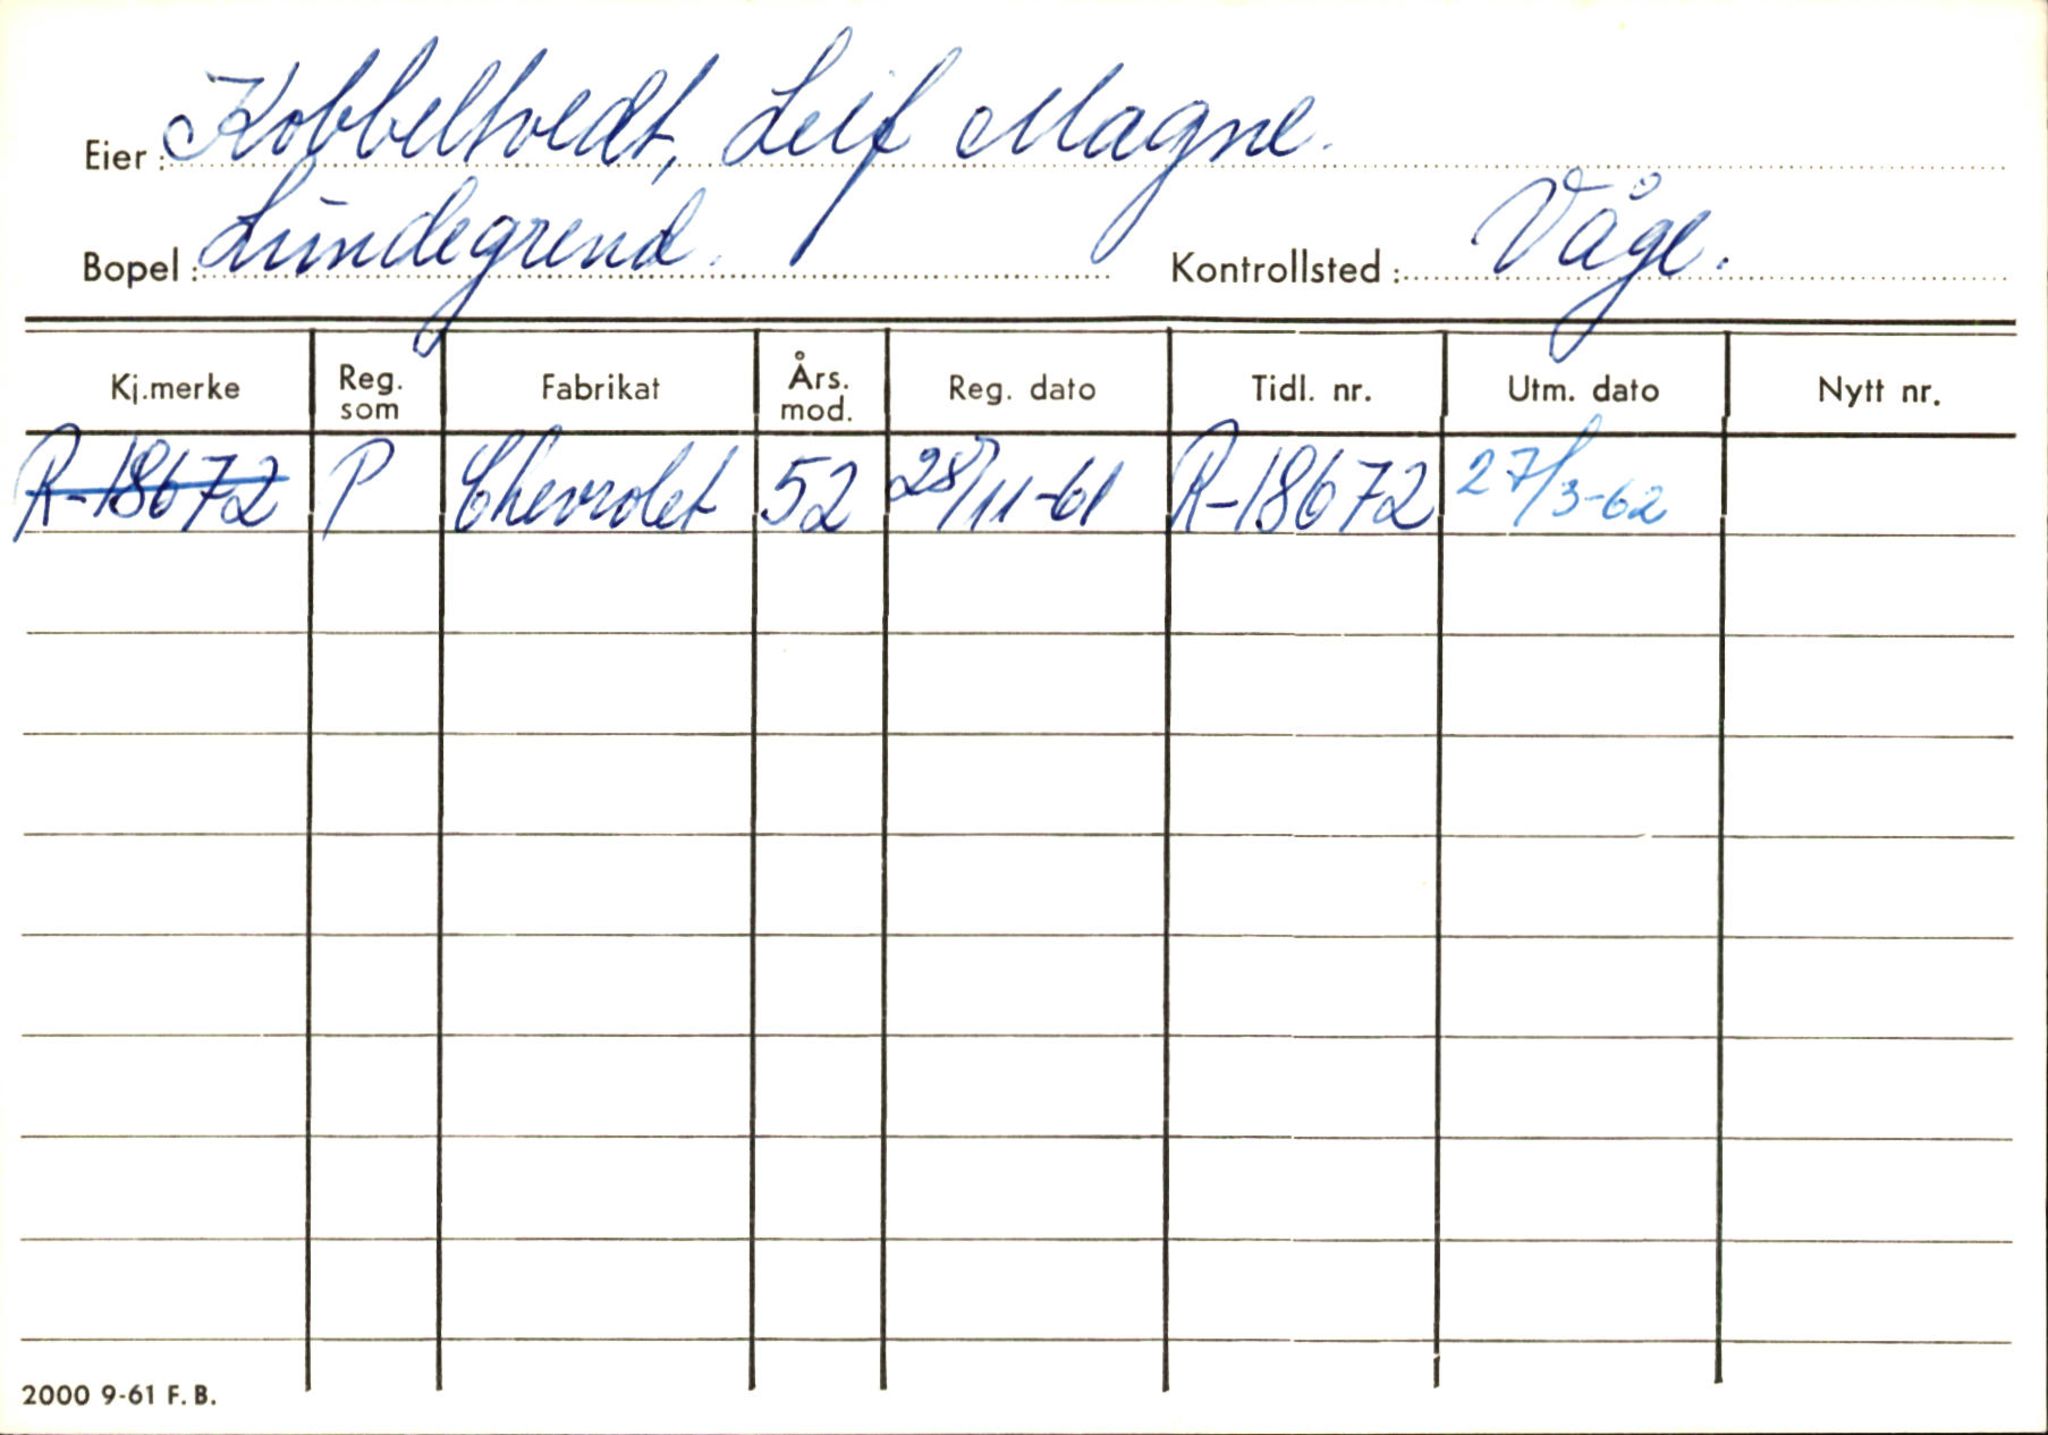 Eier : Kobbeltvedt, Leif Magne.
Bopel : Lundegrend. Kontrollsted : Våge.
Kj.merke Reg. som Fabrikat Års. mod. Reg. dato Tidl. nr. Utm. dato Nytt nr.
R-18672 P Chevrolet 52 28/11-61 R-18672 27/3-62
2000 9-61 F. B.